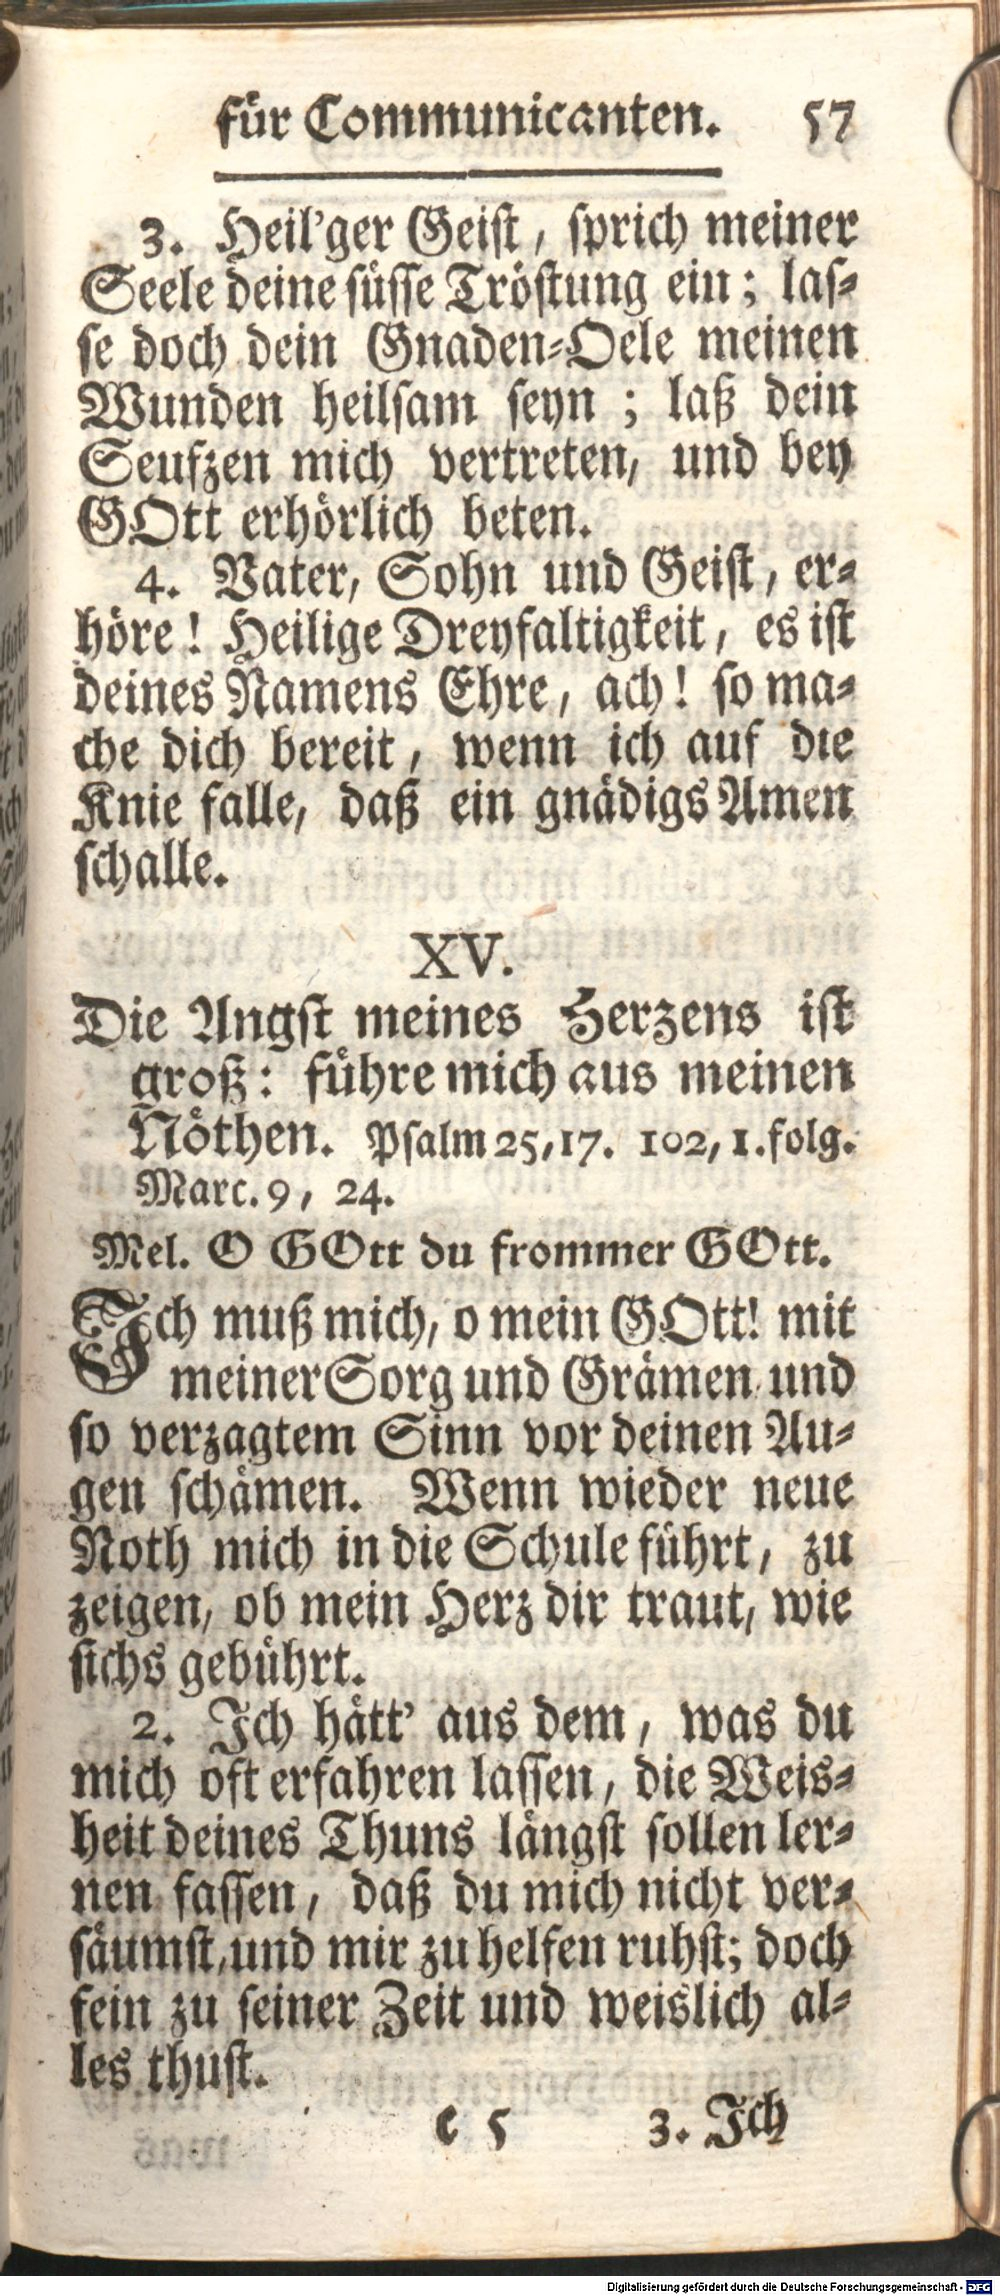 für Communicanten. 57
3. Heil'ger Geist, sprich meiner
Seele deine süsse Tröstung ein; las-
se doch dein Gnaden-Oele meinen
Wunden heilsam seyn; laß dein
Seufzen mich vertreten, und bey
GOtt erhörlich beten.
4. Vater, Sohn und Geist, er-
höre! Heilige Dreyfaltigkeit, es ist
deines Namens Ehre, ach! so ma-
che dich bereit, wenn ich auf die
Knie falle, daß ein gnädigs Amen
schalle.
XV.
Die Angst meines Herzens ist
groß: führe mich aus meinen
Nöthen. Psalm 25, 17. 102, 1. folg.
Marc. 9, 24.
Mel. O GOtt du frommer GOtt.
Ich muß mich, o mein GOtt! mit
meiner Sorg und Grämen und
so verzagtem Sinn vor deinen Au-
gen schämen. Wenn wieder neue
Noth mich in die Schule führt, zu
zeigen, ob mein Herz dir traut, wie
sichs gebührt.
2. Ich hätt' aus dem, was du
mich oft erfahren lassen, die Weis-
heit deines Thuns längst sollen ler-
nen fassen, daß du mich nicht ver-
säumst, und mir zu helfen ruhst; doch
fein zu seiner Zeit und weislich al-
les thust.
C 5 3. Ich
Digitalisierung gefördert durch die Deutsche Forschungsgemeinschaft - DFG